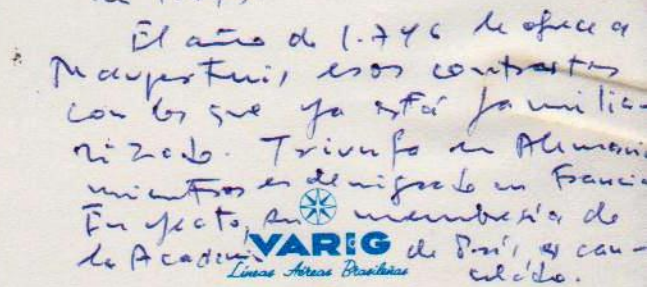 El año de 1.746 le ofrece a
Maupertuis, esos contrastes
con los que ya está familia-
rizado. Triunfa en Alemania
mientras es denigrado en Francia
En efecto, su membresía de
la Academia de París, es can-
celada.
VARIG
Líneas Aéreas Brasileñas